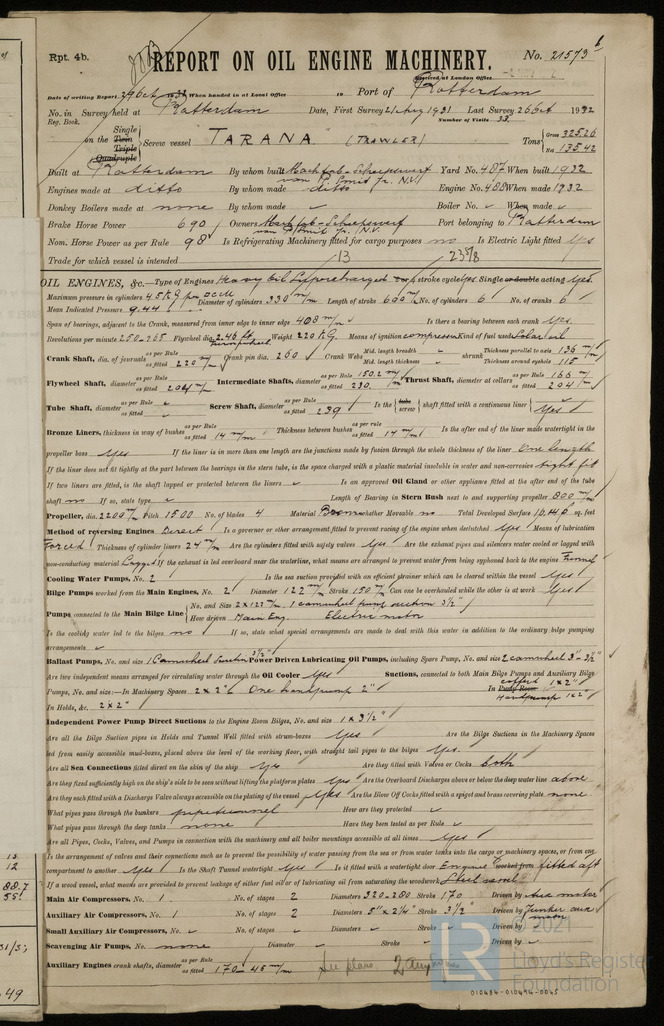 Rpt. 4b.
REPORT ON OIL ENGINE MACHINERY.
No. 21573
Received at London Office
Date of writing Report 29 Oct 1932 When handed in at Local Office 19 Port of Rotterdam
No. in Survey held at Rotterdam Date, First Survey 21 Aug 1931 Last Survey 26 Oct 1932
Reg. Book. Number of Visits 33
on the Single Twin Triple Quadruple Screw vessel "TARANA" (TRAWLER) Tons Gross 325.26 Net 135.42
Built at Rotterdam By whom built Machfab-Scheepswerf van P. Smit Jr. N.V. Yard No. 487 When built 1932
Engines made at ditto By whom made ditto Engine No. 488 When made 1932
Donkey Boilers made at none By whom made Boiler No. When made
Brake Horse Power 690 Owners Machfab-Scheepswerf van P. Smit Jr. N.V. Port belonging to Rotterdam
Nom. Horse Power as per Rule 98 Is Refrigerating Machinery fitted for cargo purposes no Is Electric Light fitted yes
Trade for which vessel is intended
13 23 5/8
OIL ENGINES, &c.—Type of Engines Heavy Oil Supercharged 2 or 4 stroke cycle Single or double acting yes.
Maximum pressure in cylinders 45 KG per Diameter of cylinders 330 m/m Length of stroke 600 m/m No. of cylinders 6 No. of cranks 6
Mean Indicated Pressure 9.44
Span of bearings, adjacent to the Crank, measured from inner edge to inner edge 408 m/m Is there a bearing between each crank Yes.
Revolutions per minute Flywheel dia. Weight 220 KG. Means of ignition compression Kind of fuel used Solar oil
Crank Shaft, dia. of journals as per Rule as fitted 220 m/m Crank pin dia. 200 Crank Webs Mid. length breadth Mid. length thickness shrunk Thickness parallel to axis 136 m/m Thickness around eyehole 115
Flywheel Shaft, diameter as per Rule as fitted 204 m/m Intermediate Shafts, diameter as per Rule 150.2 m/m as fitted 230 Thrust Shaft, diameter at collars as per Rule 166 as fitted 204 m/m
Tube Shaft, diameter as per Rule as fitted Screw Shaft, diameter as per Rule as fitted 239 Is the tube screw shaft fitted with a continuous liner Yes
Bronze Liners, thickness in way of bushes as per Rule as fitted 14 m/m Thickness between bushes as per rule as fitted 14 m/m Is the after end of the liner made watertight in the
propeller boss Yes If the liner is in more than one length are the junctions made by fusion through the whole thickness of the liner One length
If the liner does not fit tightly at the part between the bearings in the stern tube, is the space charged with a plastic material insoluble in water and non-corrosive tight fit
If two liners are fitted, is the shaft lapped or protected between the liners Is an approved Oil Gland or other appliance fitted at the after end of the tube
shaft no If so, state type Length of Bearing in Stern Bush next to and supporting propeller 800 m/m
Propeller, dia. 2200 m/m Pitch 1500 No. of blades 4 Material Bronze whether Moveable no Total Developed Surface 18.48 sq. feet
Method of reversing Engines Direct Is a governor or other arrangement fitted to prevent racing of the engine when declutched Yes Means of lubrication
Forced Thickness of cylinder liners 24 m/m Are the cylinders fitted with safety valves Yes Are the exhaust pipes and silencers water cooled or lagged with
non-conducting material Lagged If the exhaust is led overboard near the waterline, what means are arranged to prevent water from being syphoned back to the engine Funnel
Cooling Water Pumps, No. 2 Is the sea suction provided with an efficient strainer which can be cleared within the vessel Yes
Bilge Pumps worked from the Main Engines, No. 2 Diameter 122 m/m Stroke 150 m/m Can one be overhauled while the other is at work Yes
Pumps connected to the Main Bilge Line No. and Size 2 x 122 m/m 1 camwheel pump suction 3 1/2" How driven Main Eng. Electric motor
Is the cooling water led to the bilges no If so, state what special arrangements are made to deal with this water in addition to the ordinary bilge pumping
arrangements
Ballast Pumps, No. and size 1 Camwheel Suction 3 1/2" Power Driven Lubricating Oil Pumps, including Spare Pump, No. and size 2 camwheel 3"-3 1/2"
Are two independent means arranged for circulating water through the Oil Cooler Yes Suctions, connected to both Main Bilge Pumps and Auxiliary Bilge
Pumps, No. and size:—In Machinery Spaces 2 x 2" One handpump 2" In Pump Room cofferd 1 x 2" Handpump 1 x 2"
In Holds, &c. 2 x 2"
Independent Power Pump Direct Suctions to the Engine Room Bilges, No. and size 1 x 3 1/2"
Are all the Bilge Suction pipes in Holds and Tunnel Well fitted with strum-boxes Yes Are the Bilge Suctions in the Machinery Spaces
led from easily accessible mud-boxes, placed above the level of the working floor, with straight tail pipes to the bilges Yes.
Are all Sea Connections fitted direct on the skin of the ship Yes Are they fitted with Valves or Cocks both
Are they fixed sufficiently high on the ship's side to be seen without lifting the platform plates Yes Are the Overboard Discharges above or below the deep water line above
Are they each fitted with a Discharge Valve always accessible on the plating of the vessel Yes Are the Blow Off Cocks fitted with a spigot and brass covering plate none
What pipes pass through the bunkers pipetunnel How are they protected
What pipes pass through the deep tanks none Have they been tested as per Rule
Are all Pipes, Cocks, Valves, and Pumps in connection with the machinery and all boiler mountings accessible at all times Yes
Is the arrangement of valves and their connections such as to prevent the possibility of water passing from the sea or from water tanks into the cargo or machinery spaces, or from one
compartment to another Yes Is the Shaft Tunnel watertight Yes Is it fitted with a watertight door Engine worked from fitted aft
If a wood vessel, what means are provided to prevent leakage of either fuel oil or of lubricating oil from saturating the woodwork Steel vessel
Main Air Compressors, No. 1 No. of stages 2 Diameters 320-280 Stroke 170 Driven by Aux motor
Auxiliary Air Compressors, No. 1 No. of stages 2 Diameters 5" x 2 1/4" Stroke 3 1/2" Driven by Junker aux motor
Small Auxiliary Air Compressors, No. No. of stages Diameters Stroke Driven by
Scavenging Air Pumps, No. none Diameter Stroke Driven by
Auxiliary Engines crank shafts, diameter as per Rule as fitted 170-45 m/m See plans
LR
2021
Lloyd's Register
Foundation
010484-010494-0045